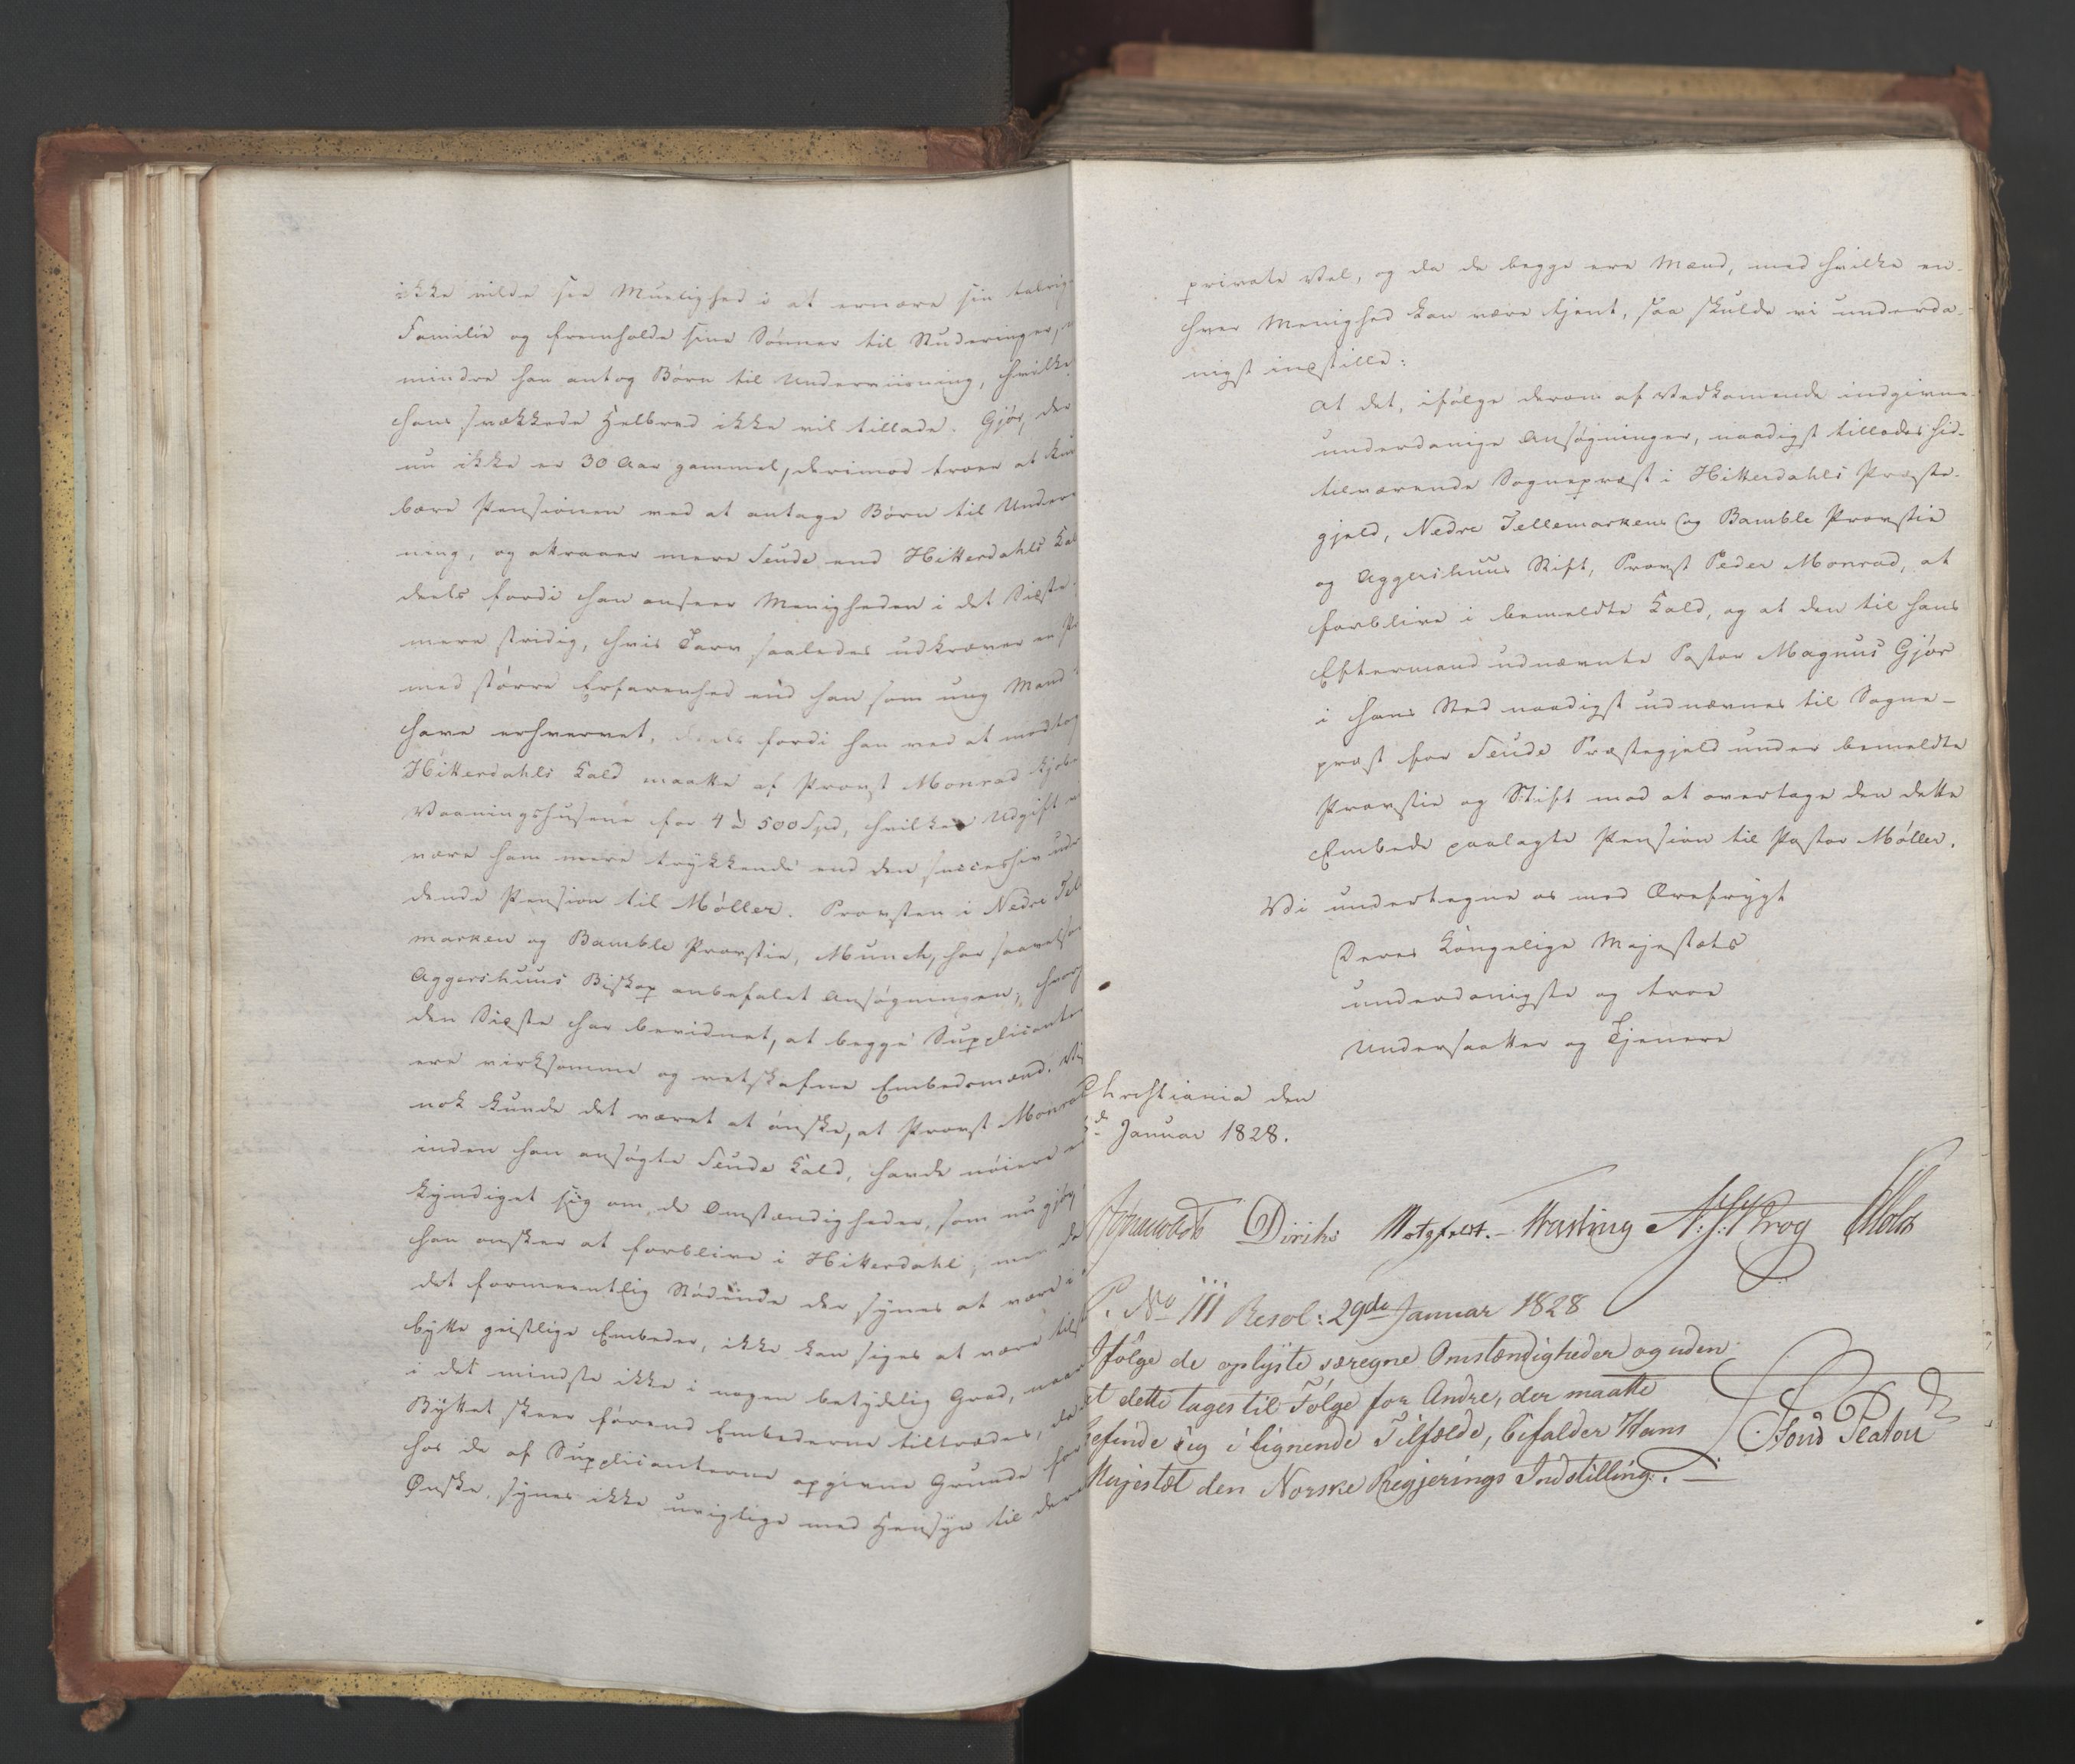 ikke vilde see Muelighed i at ernære sin talrig
Familie og fremholde sine Sønner til Studeringer,
mindre han antog Børn til Underviisning, hvilke
hans svækkede Helbred ikke vil tillade. Gjør, der
nu ikke er 30 Aar gammel, derimod troer at kun
bære Pensionen ved at antage Børn til Under
ning, og attraaer mere Seude end Hitterdahls Kal
deels fordi han anseer Menigheden i det Sidste
mere stridig, hvis Tarv saaledes udkræver en
med større Erfarenhed end han som ung Mand
have erhvervet, deels fordi han ved at modtag
Hitterdahls Kald maatte af Provst Monrad kjøb
Vaaningshusene for 4 à 500 Spd, hvilken Udgift
være ham mere trykkende end den successiv ud
dende Pension til Møller. Provsten i Nedre Tel
marken og Bamble Provstie, Munch, har saavelsom
Aggershuus Biskop anbefalet Ansøgningen, hvorh
den Sidste har bevidnet, at begge Supplicanter
ere virksomme og retskafne Embedsmænd. Vel
nok kunde det været at ønske, at Provst Monrad
inden han ansøgte Seude Kald, havde nøiere
kyndiget sig om de Omstændigheder, som nu gjør
han ønsker at forblive i Hitterdahl, men da
det formeentlig Stødende der synes at være i
bytte geistlige Embeder, ikke kan siges at være til
i det mindste ikke i nogen betydelig Grad, naar
Byttet skeer førend Embederne tiltrædes, da
hos de af Supplicanterne opgivne Grunde for
Ønske, synes ikke uvigtige med Hensyn til dere
private Vel, og da de begge ere Mænd, med hvilke en-
hver Menighed kan være tjent, saa skulde vi underda-
nigst indstille:
At det, ifølge derom af Vedkommende indgivne
underdanige Ansøgninger, naadigst tillades hid-
tilværende Sognepræst i Hitterdahls Præste-
gjeld, Nedre Tellemarkens og Bamble Provstie
og Aggershuus Stift, Provst Peder Monrad, at
forblive i bemeldte Kald, og at den til hans
Eftermand udnævnte Pastor Magnus Gjør
i hans Sted naadigst udnævnes til Sogne-
præst for Seude Præstegjeld under bemeldte
Provstie og Stift mod at overtage den dette
Embede paalagte Pension til Pastor Møller.
Vi undertegne os med Ærefrygt
Deres Kongelige Majestæts
underdanigste og troe
Undersaatter og Tjenere
Christiania den
Januar 1828.
Diriks Motzfeldt. Hasting A. Krog Holst
P. No III Resol: 29de Januar 1828
Ifølge de oplyste særegne Omstændigheder og uden
at dette tages til Følge for Andre, der maatte
befinde sig i lignende Tilfælde, bifalder Hans
Majestæt den Norske Regjerings Indstilling.
Platou